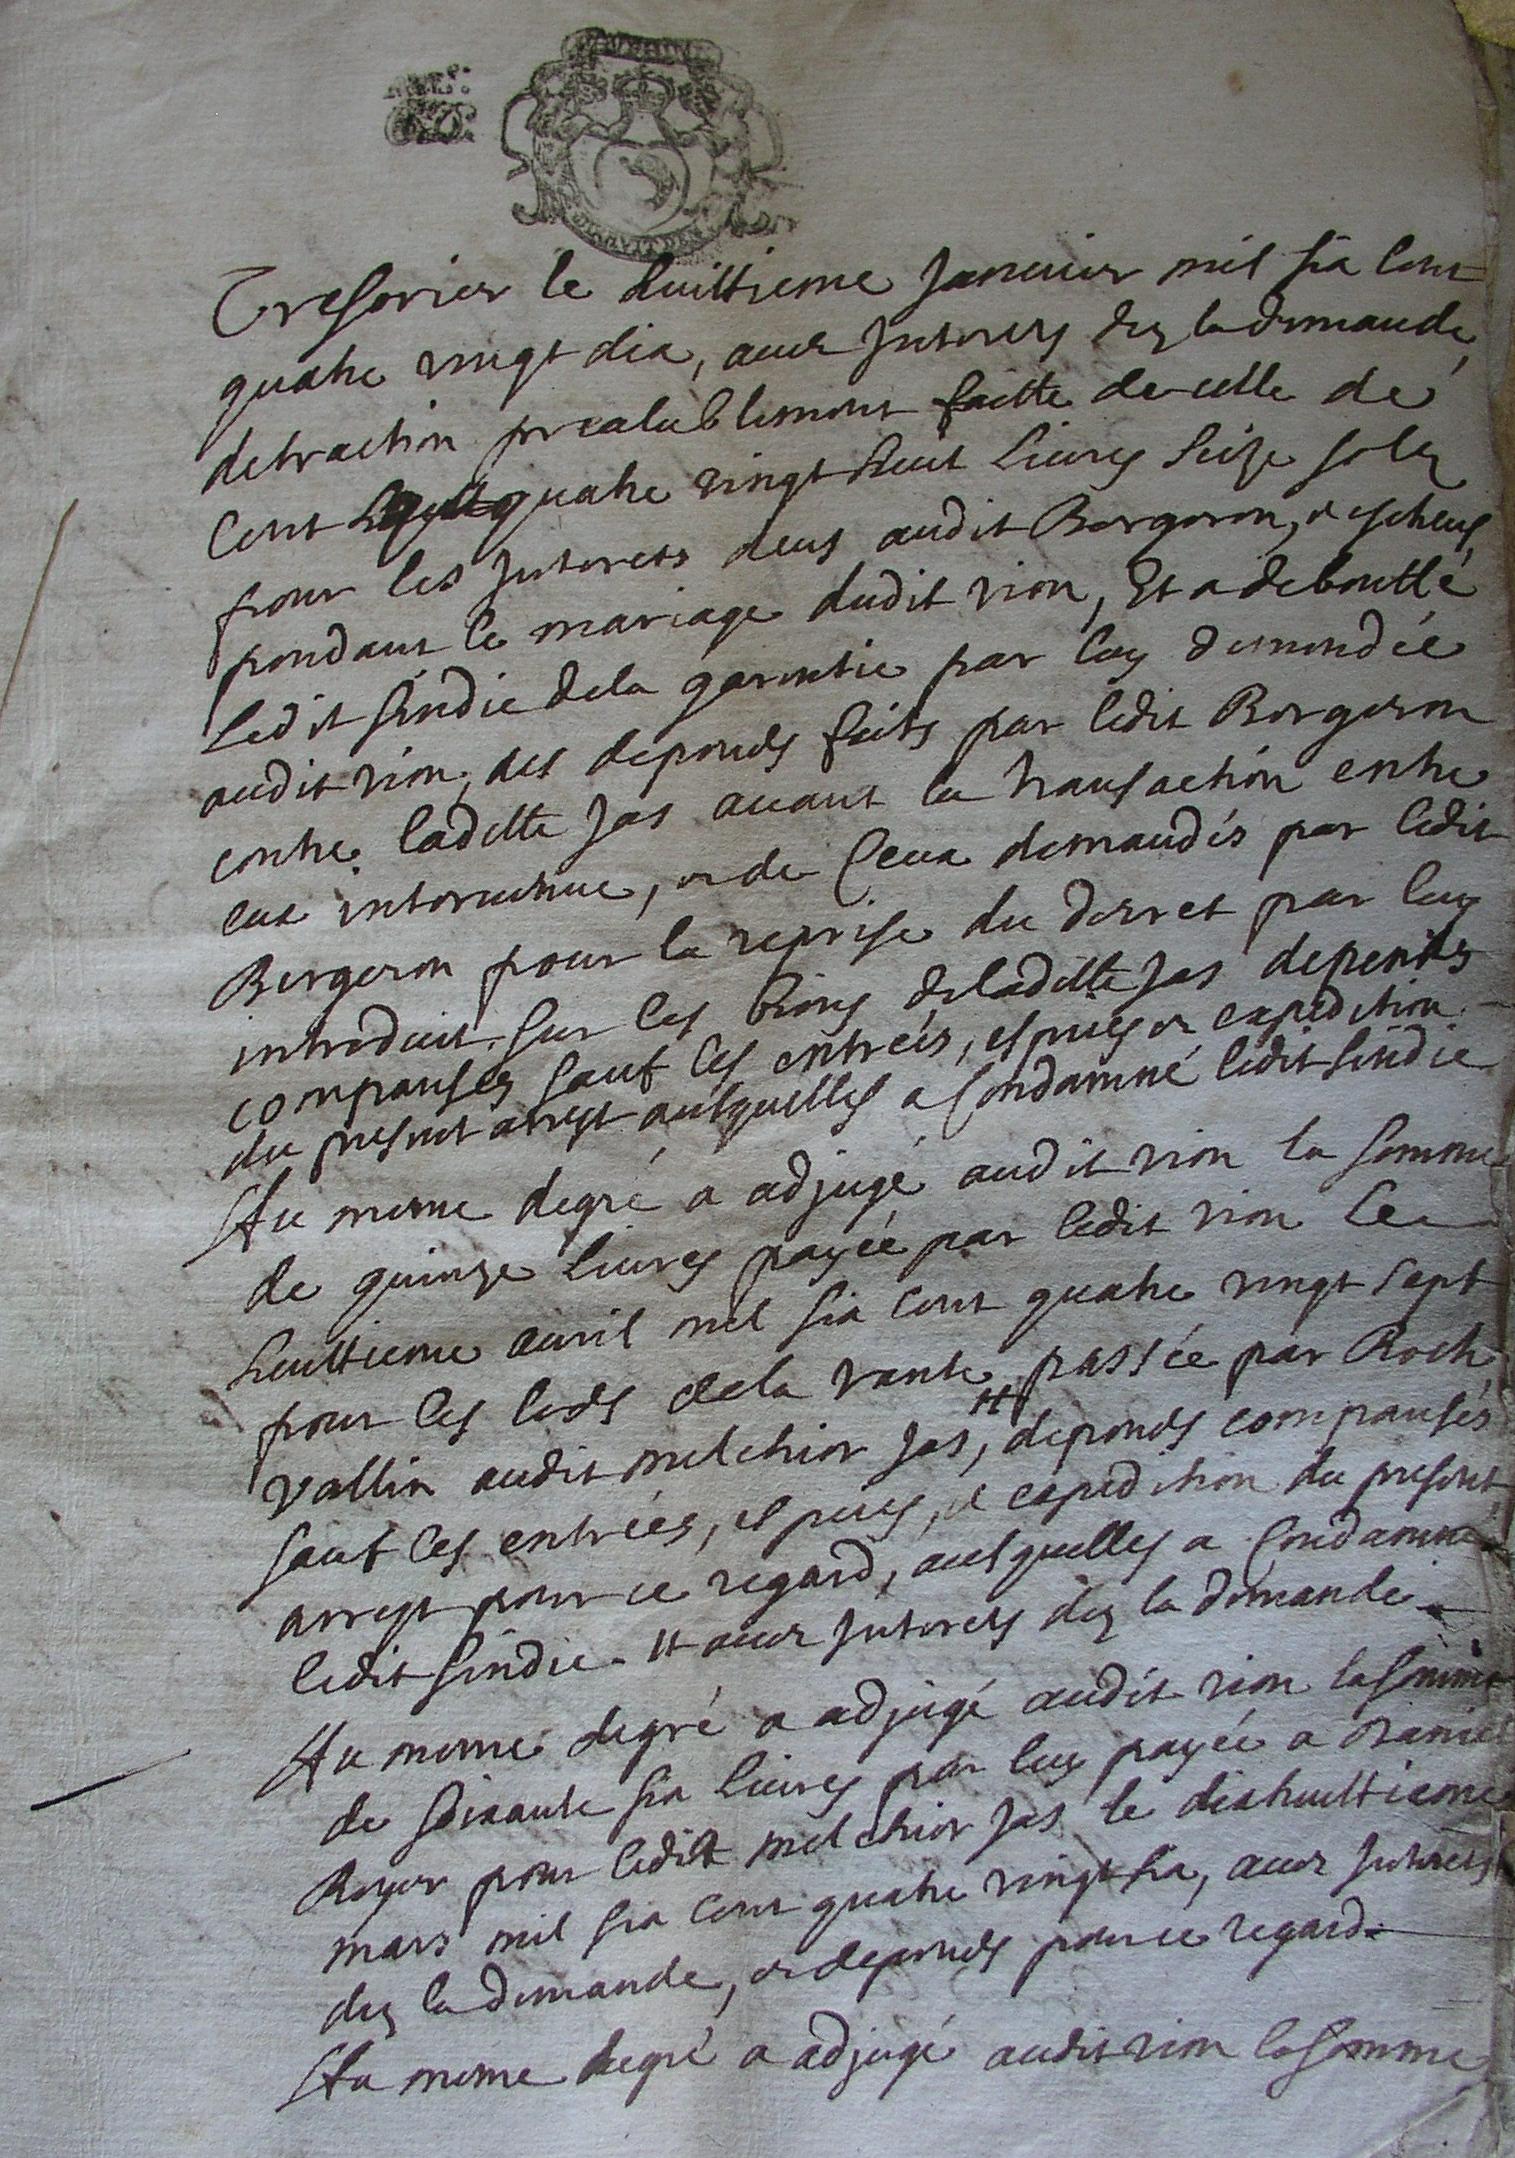 Tresorier le huittieme Januier mil six cent
quatre vingt dix, auec Interets dez la demande,
detraction prealablement faitte de celle de
Cent quatre vingt huit Liures Seize solz
pour les Interets deus audit Bergeron, et escheus
pendant le mariage dudit rion, Et a deboutté
Ledit sindic dela garentie par luy demandée
audit rion, des depends faits par ledit Bergeron
contre laditte Jas auant la transaction entre
eux interuenue, et de Ceux demandés par ledit
Bergeron pour la reprise du decret par luy
introduit sur les biens deladitte Jas depends
compansez sauf les entrées, espices et expedition
du present arrest ausquelles a Condamné ledit sindic
Au meme degré a adjugé audit rion la somme
de quinze liures payée par ledit rion le
huittieme auril mil six cent quatre vingt sept
pour les lods dela vante passée par Roch
vallin audit melchior Jas, # depends compansés
sauf les entrées, espices, et expedition du present
arrest pour ce regard, ausquelles a Condamné
ledit sindic. # auec Interets dez la demande
Au meme degré a adjugé audit rion la somme
de soixante six liures par luy payée a Daniel
Royer pour ledit melchior Jas le dixhuittieme
mars mil six cent quatre vingt six, auec Interets
dez la demande, et depends pour ce regard.
Au meme degré a adjugé audit rion la somme